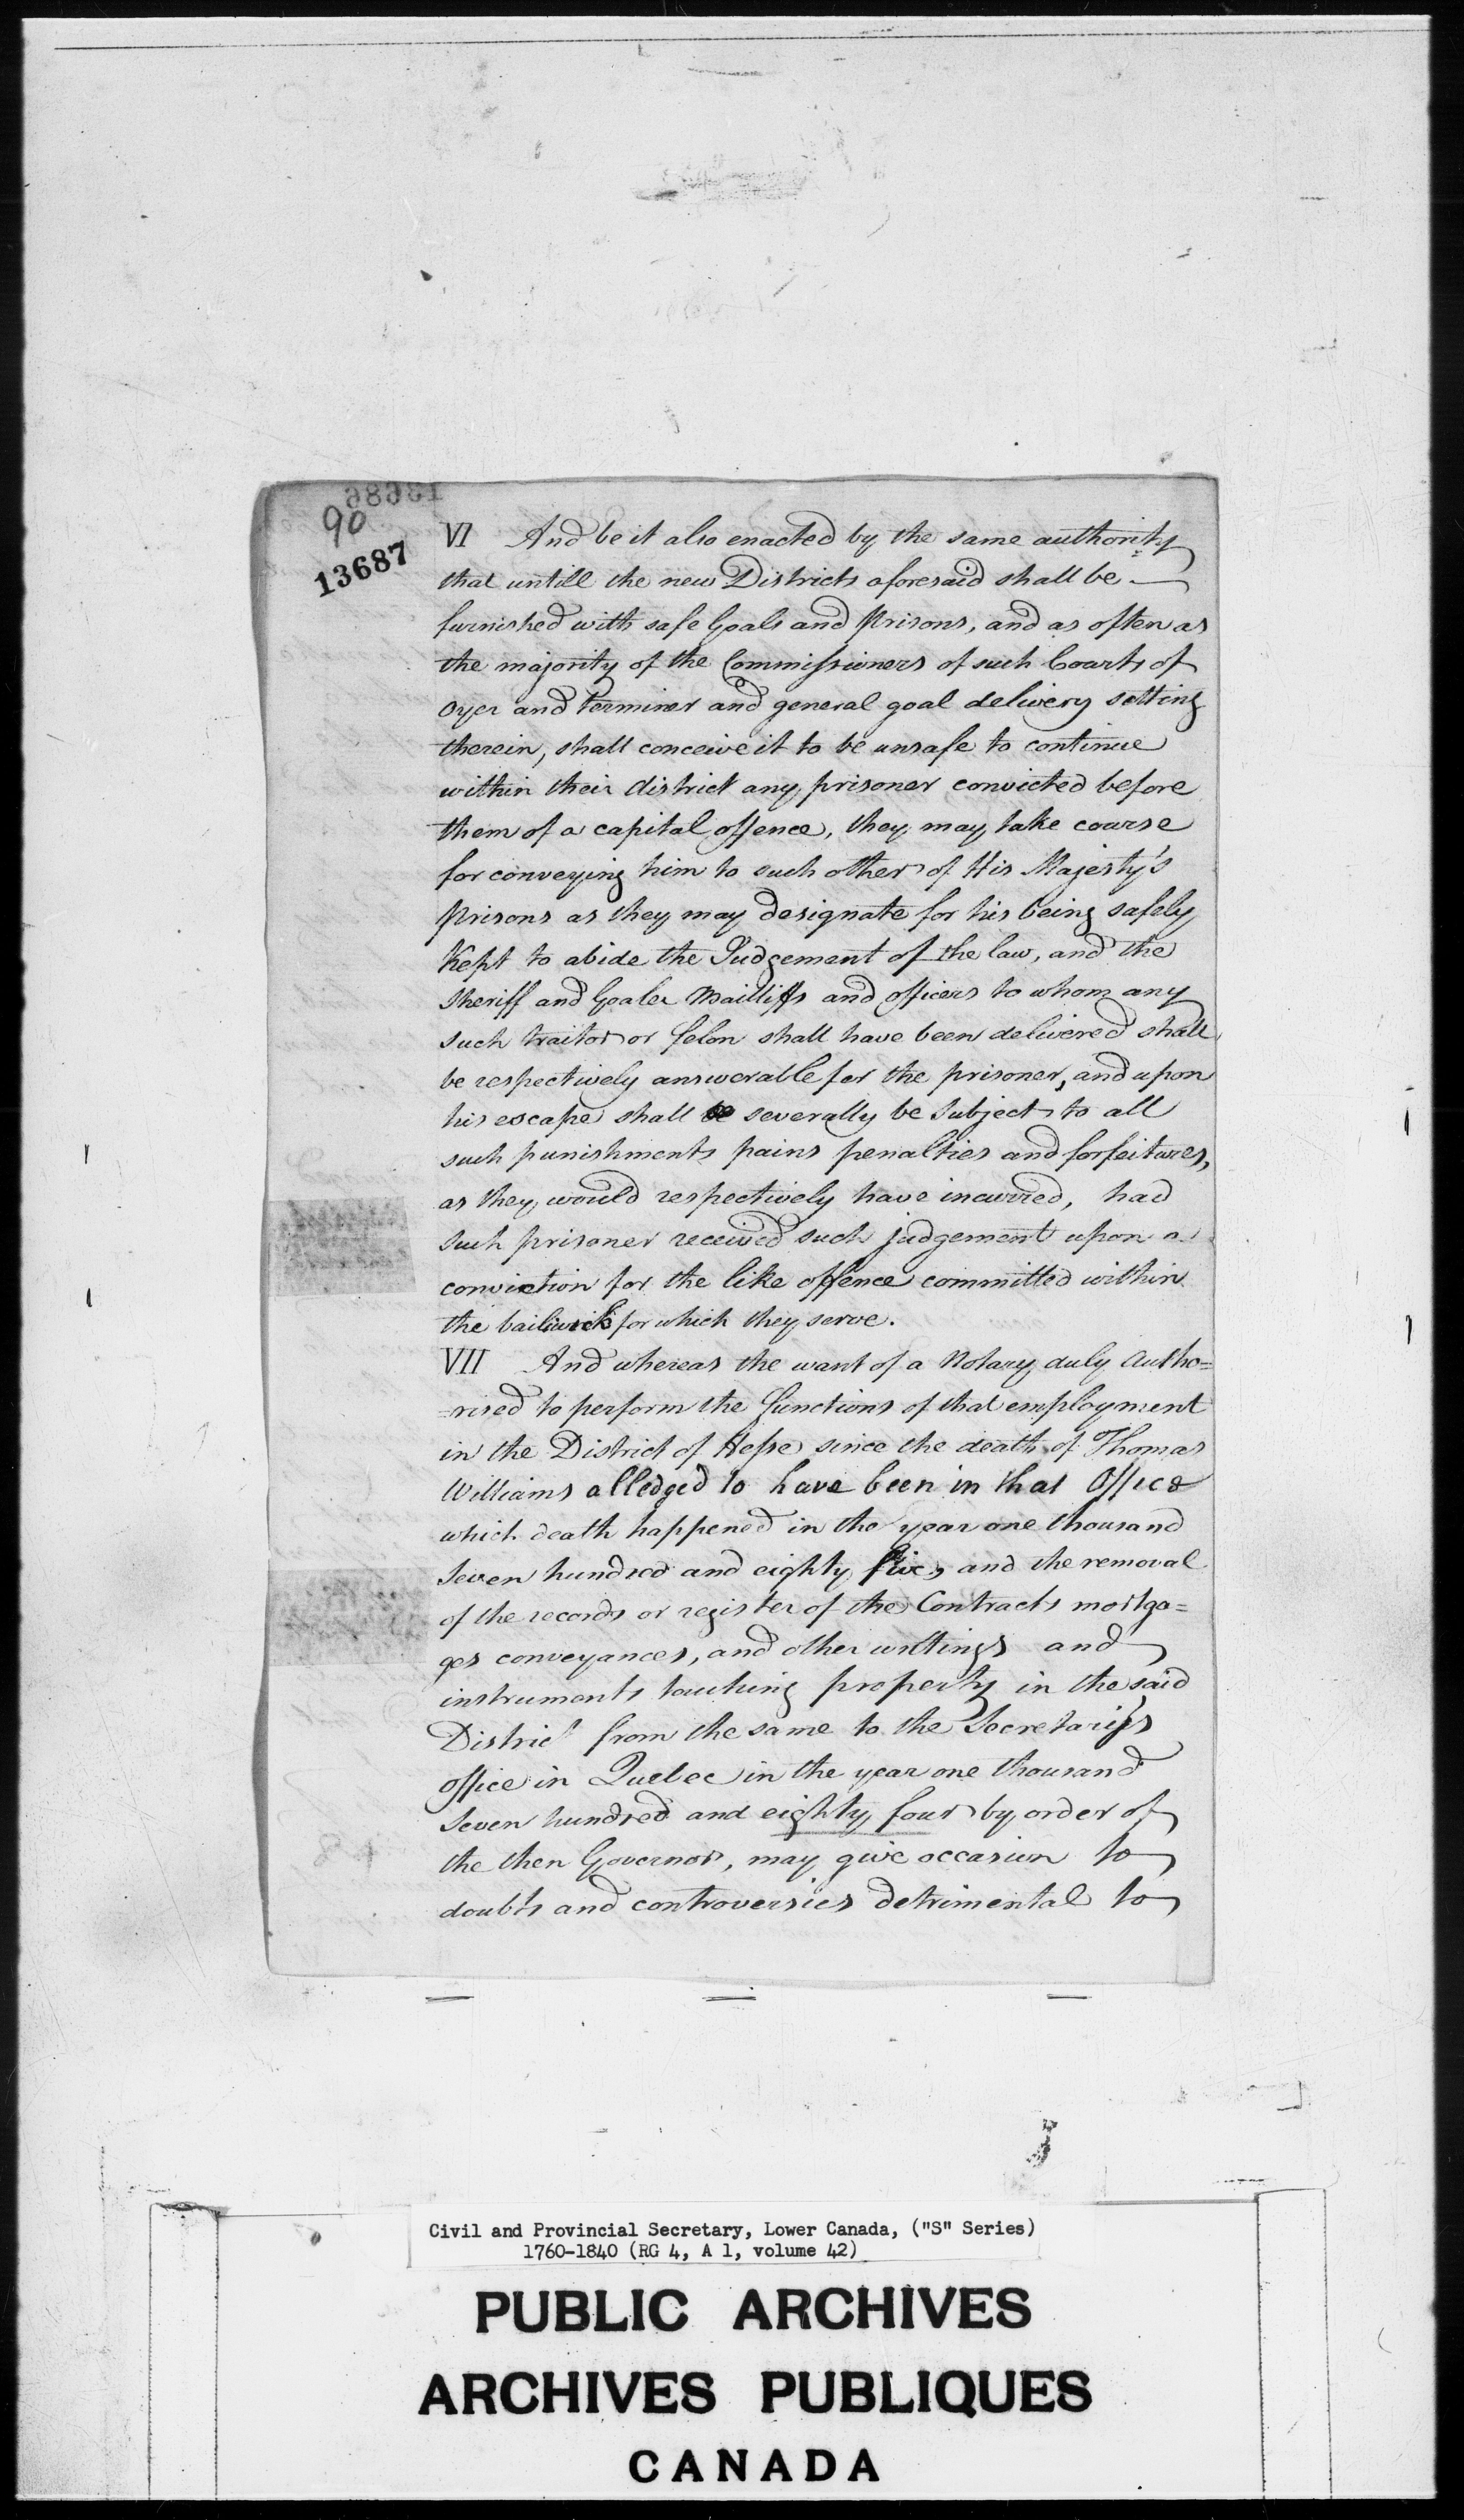 13686
90
13687
VI And be it also enacted by the same authority
that untill the new Districts aforesaid shall be
furnished with safe Goals and Prisons, and as often as
the majority of the Commissioners of such Courts of
Oyer and Terminer and general goal delivery setting
therein, shall conceive it to be unsafe to continue
within their district any prisoner convicted before
them of a capital offence, they may take course
for conveying him to such other of His Majesty's
prisons as they may designate for his being safely
Kept to abide the Judgement of the law, and the
Sheriff and Goaler Bailliffs and officers to whom any
such traitor or felon shall have been delivered shall
be respectively answerable for the prisoner, and upon
his escape shall severally be subject to all
such punishments pains penalties and forfeitures,
as they would respectively have incurred, had
such prisoner received such judgement upon a
conviction for the like offence committed within
the bailiwick for which they serve.
VII And whereas the want of a Notary duly autho=
=rised to perform the functions of that employment
in the District of Hespe since the death of Thomas
Williams alledged to have been in that Office
which death happened in the year one thousand
Seven hundred and eighty five, and the removal
of the records or register of the Contracts mortga=
ges conveyances, and other writings and
instruments touching property in the said
District from the same to the Secretarys
office in Quebec in the year one thousand
Seven hundred and eighty four by order of
the then Governor, may give occasion to
doubts and controversies detrimental to
Civil and Provincial Secretary, Lower Canada, ("S" Series)
1760-1840 (RG 4, A 1, volume 42)
PUBLIC ARCHIVES
ARCHIVES PUBLIQUES
CANADA